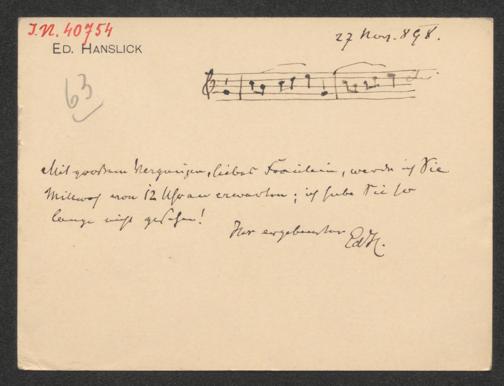 I.N. 40754
27 Nov. 898.
ED. HANSLICK
63
Mit großem Vergnügen, liebes Fräulein, werde ich Sie
Mittwoch von 12 Uhr an erwarten; ich habe Sie so
lange nicht gesehen!
Ihr ergebenster
EdH.